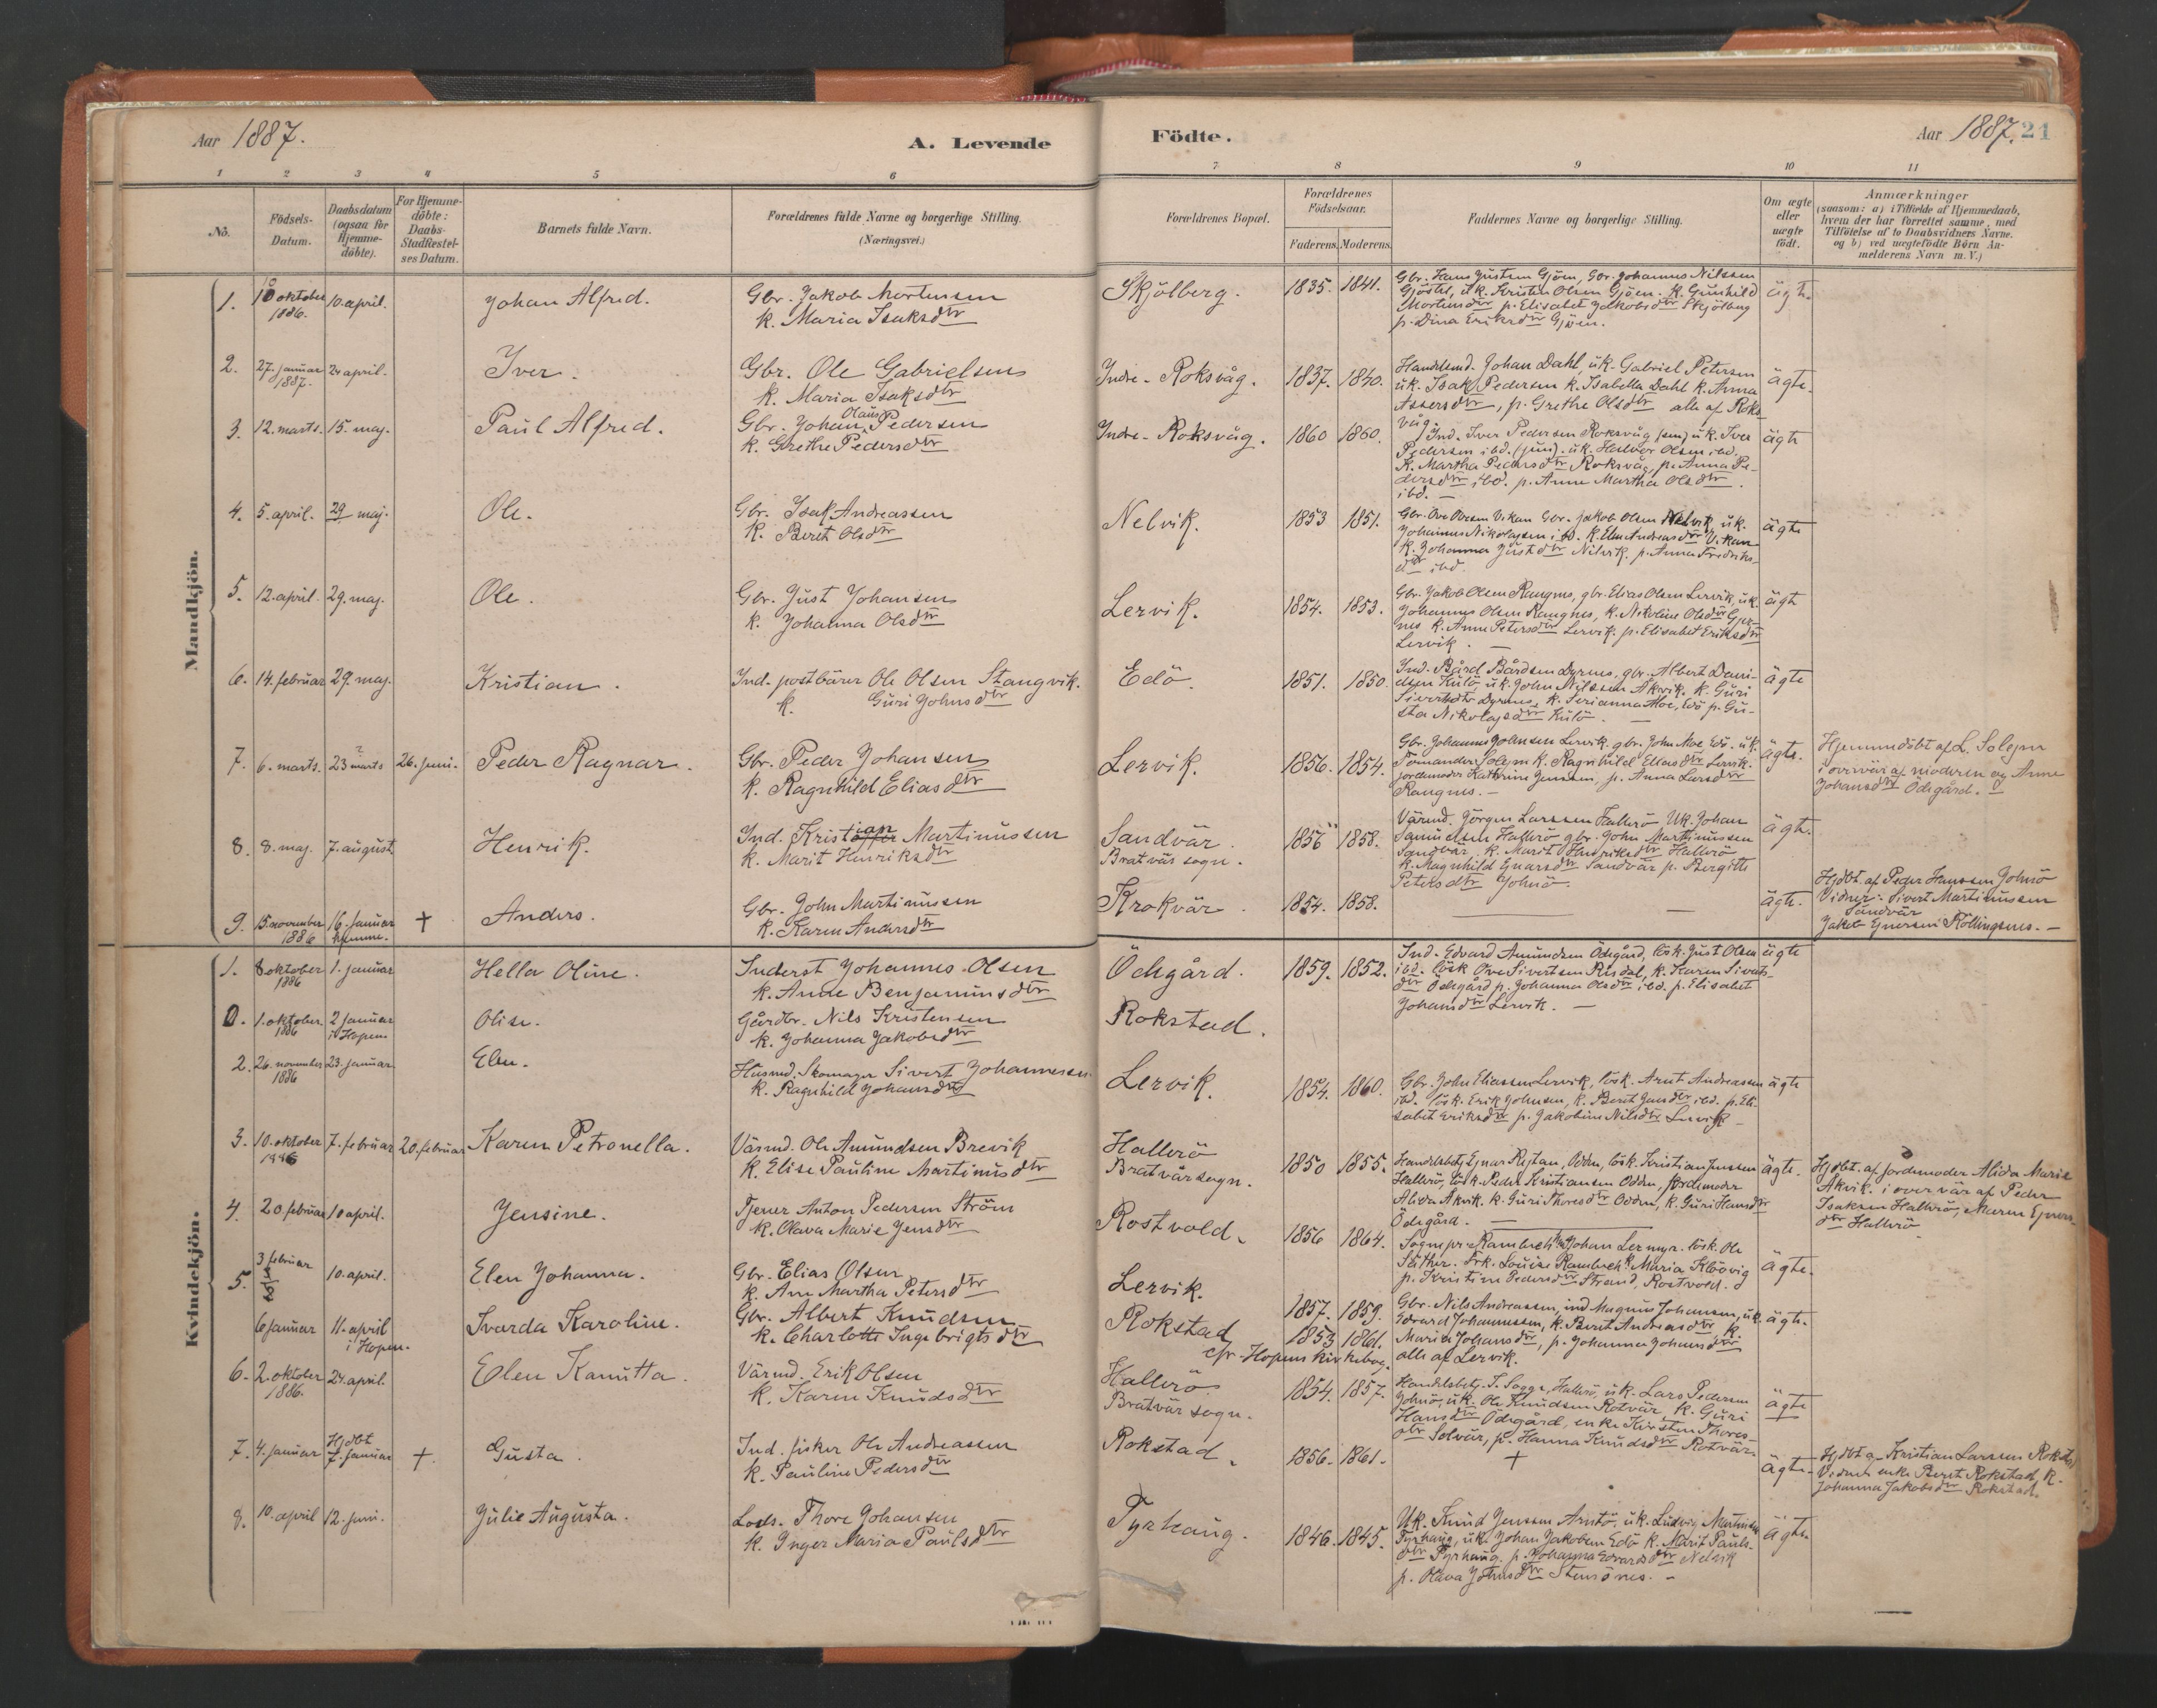 Aar 1887.
A. Levende
Födte.
Aar 1887. 21
1 2 3 4 5 6 7 8 9 10 11
No.
Födsels-Datum.
Daabsdatum (ogsaa for Hjemme-döbte).
For Hjemme-döbte: Daabs-Stadfestel-ses Datum.
Barnets fulde Navn.
Forældrenes fulde Navne og borgerlige Stilling. (Næringsvei.)
Forældrenes Bopæl.
Forældrenes Födselsaar.
Faderens. Moderens.
Faddernes Navne og borgerlige Stilling.
Om ægte eller uægte födt.
Anmærkninger
(saasom: a) i Tilfælde af Hjemmedaab,
hvem der har forrettet samme, med
Tilföielse af to Daabsvidners Navne.
og b) ved uægtefödte Börn An-
melderens Navn m. V.)
Mandkjön.
1. 10 oktober 1886. 10. april. Johan Alfred.
Gbr. Jakob Mortensen
k. Maria Isaksdtr
Skjölberg. 1835. 1841.
Gbr. Hans Justsen Gjöen, Gbr. Johannes Nilssen
Gjöstöl, uk. Kristen Olsen Gjöen. k. Gunhild
Mortensdtr p. Elisabet Jakobsdtr Skjölberg
p. Dina Eriksdtr Gjöen.
ägte.
2. 27. januar 1887. 24 april. Iver.
Gbr. Ole Gabrielsen
k. Maria Isaksdtr
Indre-Roksvåg. 1837. 1840.
Handelsmd. Johan Dahl, uk. Gabriel Petersen
uk. Isak Pedersen k. Isabella Dahl k. Anna
Assersdtr, p. Grethe Olsdtr alle af Roks-
våg.
ägte.
3. 12. marts. 15. maj. Paul Alfred.
Gbr. Johan Olaus Pedersen
k. Grethe Pedersdtr
Indre-Roksvåg. 1860 1860.
Ind. Iver Pedersen Roksvåg (sen) uk. Iver
Pedersen ibd. (jun). uk. Halvor Olsen ibd.
k. Martha Pedersdtr Roksvåg, p. Anna Pe-
dersdtr ibd. p. Anne Martha Olsdtr
ibd. —
ägte
4. 5. april. 29 maj. Ole.
Gbr. Isak Andreassen
k. Beret Olsdtr
Nelvik. 1853 1851.
Gbr. Ove Ovesen Vikan Gbr. Jakob Olsen Nelvik, uk.
Johannes Nikolajsen ibd. k. Elen Andreasdtr Vikan
k. Johanna Justdtr Nelvik. p. Anna Fredriks-
dtr ibd.
ägte
5. 12. april. 29. maj. Ole.
Gbr. Just Johansen
k. Johanna Olsdtr
Lervik. 1854. 1853.
Gbr. Jakob Olsen Rangnes, gbr. Elias Olsen Lervik, uk.
Johannes Olsen Rangnes, k. Nikoline Olsdtr Gje-
nes k. Anne Petersdtr Lervik. p. Elisabet Eriksdtr
Lervik. —
ägte
6. 14. februar 29. maj. Kristian.
Ind. postbärer Ole Olsen Stangvik.
k. Guri Johnsdtr
Edö. 1851. 1850.
Ind. Bård Bårdsen Dyrnes, gbr. Albert Dani-
elsen Kulö, uk. John Nilssen Åkvik. k. Guri
Sivertsdtr Dyrnes, k. Serianna Moe, Edö p. Gu-
sta Nikolajsdtr Kulö. —
ägte
7. 6. marts. 23 ? marts 26. juni. Peder Ragnar.
Gbr. Peder Johansen
k. Ragnhild Eliasdtr
Lervik. 1856. 1854.
Gbr. Johannes Johnsen Lervik. gbr. John Moe Edö. uk.
Tömandar Solem k. Ragnhild Eliasdtr Lervik.
jordemoder Kathrine Jensen, p. Anna Larsdtr
Rangnes. —
ägte.
Hjemmedöbt af L. Solem
i overvär af moderen og Anne
Johansdtr Ödegård. —
8. 8. maj. 7. august. Henrik.
Ind. Kristian Martinussen
k. Marit Henriksdtr
Sandvär
Bratvär sogn. 1856 1858.
Värmd. Jörgen Larssen Hallerö Uk. Johan
Samuelsen Hallerö gbr. John Martinussen
Sandvär. k. Marit Henriksdtr Hallerö
k. Magnhild Ejnarsdtr Sandvär p. Bergitte
Petersdtr Johnö
ägte.
9. 15. november 1886 16. januar hjemme. † Anders.
Gbr. John Martinussen
k. Karen Andersdtr
Krokvär. 1854. 1858.
ägte.
Hjdbt. af Peder Hanssen Johnö
Vidner: Sivert Martinussen
Sandvär
Jakob Ejnersen Röllingsnes. —
Kvindekjön.
1. 8 oktober 1886 1. januar Hella Oline.
Inderst Johannes Olsen
k. Anne Benjaminsdtr
Ödegård. 1859. 1852.
Ind. Edvard Amundsen Ödegård, lösk. Just Olsen
ibd. lösk Ove Sivertsen Risdal, k. Karen Siverts-
dtr Ödegård p. Johanna Olsdtr ibd. p. Elisabet
Johansdtr Lervik. —
ägte
0. 1. oktober 1886 2 januar i Hopen Olise.
Gårdbr. Nils Kristensen
k. Johanna Jakobsdtr
Rokstad.
2. 26. november 1886 23. januar Elen.
Husmd. Skomager Sivert Johannessen
k. Ragnhild Johansdtr
Lervik. 1854. 1860.
Gbr. John Eliassen Lervik, lösk. Arnt Andreassen
ibd. lösk. Erik Johnsen, k. Berit Jensdtr ibd. p. Eli-
sabet Eriksdtr p. Jakobine Nilsdtr Lervik —
ägte
3. 10. oktober 1886 7. februar 20. februar Karen Petronella.
Värmd. Ole Amundsen Brevik
k. Elise Pauline Martinusdtr
Hallerö
Bratvärsogn. 1850 1855.
Handelsbetj Ejnar Rejtan, Odden, lösk. Kristian Jenssen
Hallerö, lösk. Peder Kristiansen Odden, Jordemoder
Alida Akvik. k. Guri Thoresdtr Odden, k. Guri Hansdtr
Ödegård. —
ägte.
Hjdbt. af Jordemoder Alida Marie
Akvik. i overvär af Peder
Isaksen Hallerö, Maren Ejners-
dtr Hallerö
4. 20. februar 10 april. Jensine.
Tjener Anton Pedersen Ström
k. Olava Marie Jensdtr
Rostvold. 1856 1864.
Sognepr. Rambech, Johan Lermyr. lösk. Ole
Säther. Frk. Louise Rambech k. Maria Klöovig
p. Kristine Pedersdtr Strand, Rostvold.
ägte.
5. 3 februar 10. april. Elen Johanna.
Gbr. Elias Olsen
k. Ane Martha Petersdtr
Lervik. 1857. 1859.
Gbr. Nils Andreassen, ind Magnus Johansen, uk.
Edvard Johannessen, k. Berit Andreasdtr k.
Maria Johansdtr, p. Johanna Johansdtr
alle af Lervik.
ägte.
6 januar 11. april i Hopen. Ivarda Karoline.
Gbr. Albert Knudsen
k. Charlotte Ingebrigtsdtr
Rokstad 1853 1861.
cfr. Hopens kirkebog.
6. 2. oktober 1886. 24. april. Elen Kanutta.
Värmd. Erik Olsen
k. Karen Knudsdtr
Hallerö
Bratvär sogn. 1854. 1857.
Handelsbetj. T. Sogge, Hallerö, uk. Lars Pedersen
Johnö, uk. Ole Knudsen Rotvär, k. Guri
Hansdtr Ödegård, enke Kirsten Thores-
dtr Solvär, p. Hanna Knudsdtr Rotvär
ägte
7. 4. januar Hjdbt 7. januar †. Gusta.
Ind. fisker Ole Andreassen
k. Pauline Pedersdtr
Rokstad. 1856. 1861. †
ägte.
Hjdbt af Kristian Larssen Rokstad
Vidner enke Beret Rokstad, k.
Johanna Jakobsdtr Rokstad.
8. 10. april 12. juni. Julie Augusta.
Lods. Thore Johansen
k. Inger Maria Paulsdtr
Tyrhaug. 1846. 1845.
Uk. Knud Jenssen Arntö, uk. Ludvig Martinsen
Tyrhaug, uk. Johan Jakobsen Edö k. Marit Pauls-
dtr Tyrhaug. p. Johanna Edvardsdtr Nelvik
p. Olava Johnsdtr Stensönes. —
ägte.